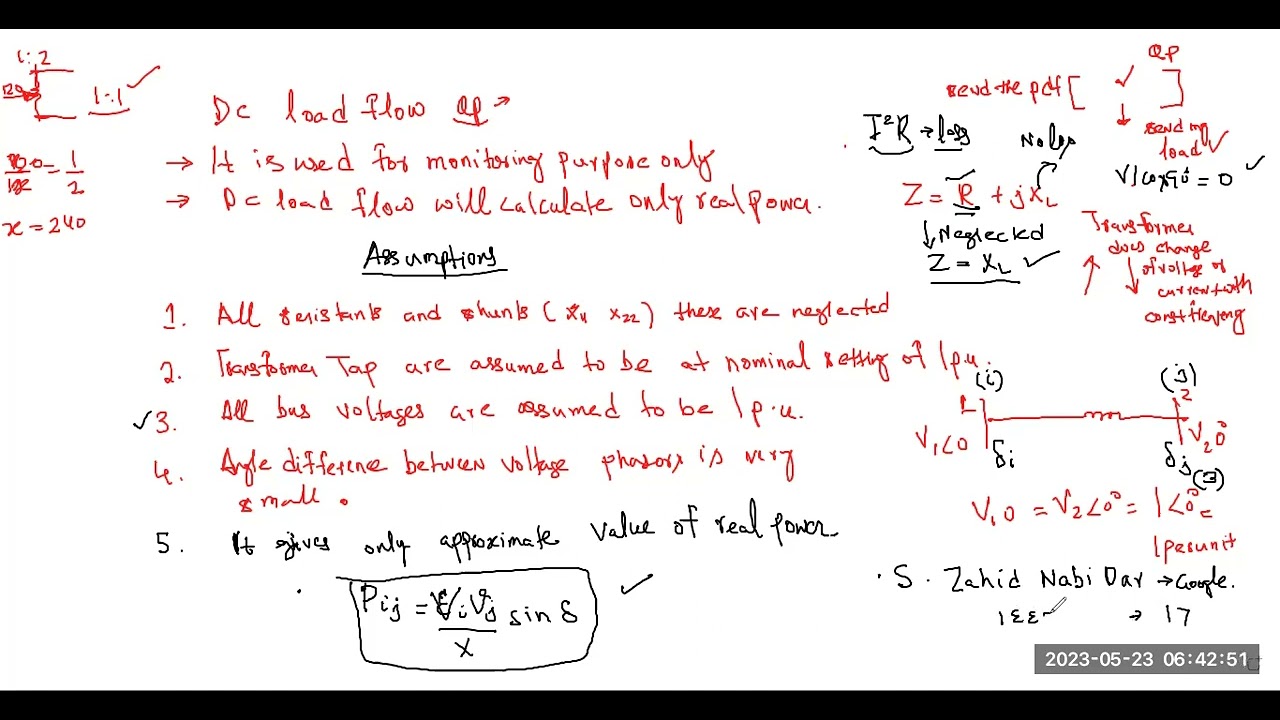 1:2
1:1
1
2
x = 240
DC load flow QP →
→ It is used for monitoring purpose only
→ DC load flow will calculate only real power.
Assumptions
1. All seristants and shunts ( x22 ) these are neglected
2. Transformer Tap are assumed to be at nominal setting of 1 p.u.
✓3. All bus voltages are assumed to be 1 p.u.
4. Angle difference between voltage phasors is very
small.
5. It gives only approximate value of real power.
Pij = ViVj sin δ
X
QP
send the pdf [ ✓ ]
↓
sending
load ✓
I²R → loss
No loss
V I cos90° = 0 ✓
Z = R + jXL
↓ Neglected
Z = XL ✓
Transformer
does change
of voltage or
current with
const
(i) (j)
1 2
V1∠0 V20°
δi δj
V10 = V2∠0° = 1∠0° =
1 per unit
S. Zahid Nabi Dar → Google.
→ 17
2023-05-23 06:42:51